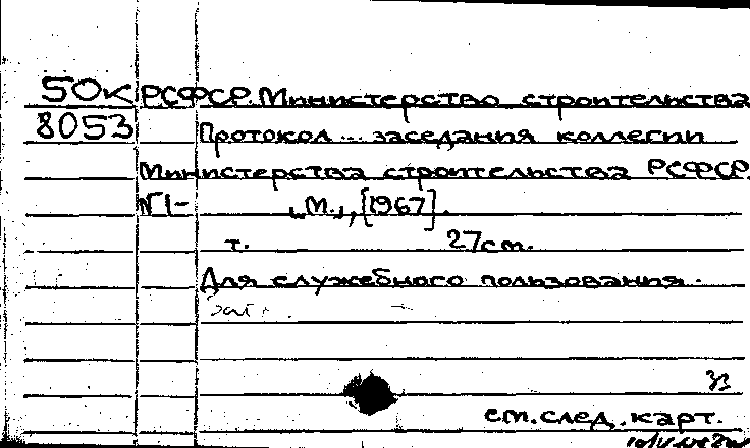 50к РСФСР. Министерство строительства
8053 Протокол ... заседания коллегии
Министерства строительства РСФСР.
№1- „М.", [1967].
т. 27см.
Для служебного пользования.
см. след. карт.